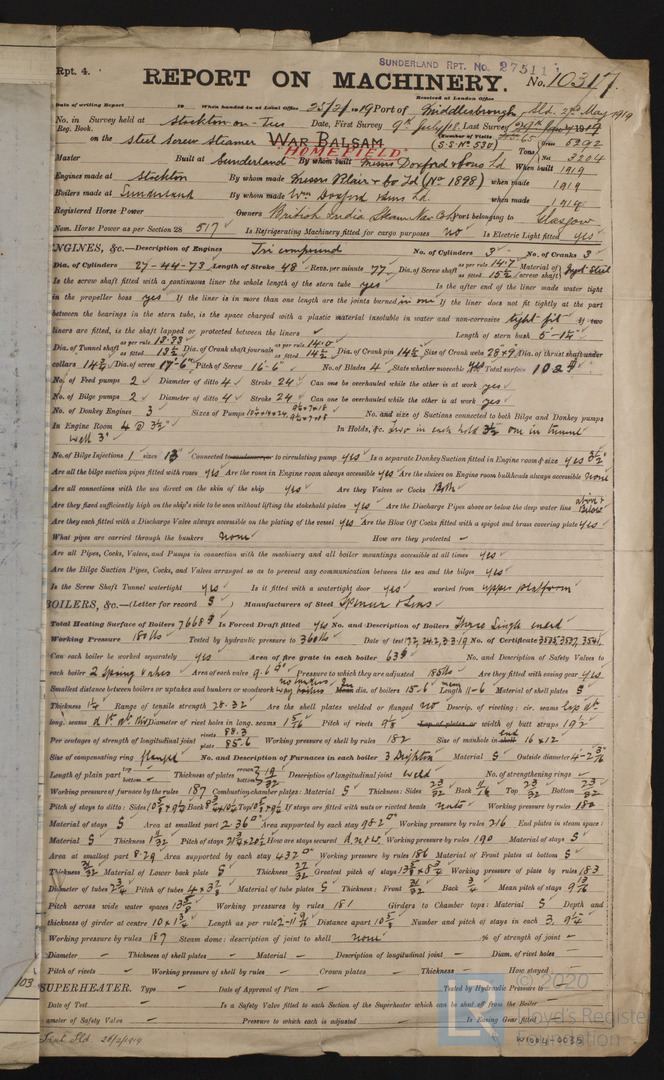 SUNDERLAND RPT. No. 27511
Rpt. 4.
REPORT ON MACHINERY. No. 10317.
Received at London Office
Date of writing Report 19 When handed in at Local Office 23/2/1919 Port of Middlesbrough, Sld. 27th May 1919
No. in Survey held at Stockton-on-Tees Date, First Survey 9th July 18. Last Survey 1919
Reg. Book. (Number of Visits
on the Steel Screw Steamer WAR BALSAM (S.S. No. 530) Tons Gross 5392
"HOMEFIELD" Net 3204
Master Built at Sunderland By whom built Messrs Doxford & Sons Ld When built 1919
Engines made at Stockton By whom made Messrs Blair & Co Ld (No 1898) when made 1919
Boilers made at Sunderland By whom made Wm Doxford & Sons Ld. when made 1919
Registered Horse Power Owners British India Steam Nav. Co Port belonging to Glasgow
Nom. Horse Power as per Section 28 517 Is Refrigerating Machinery fitted for cargo purposes No Is Electric Light fitted yes
ENGINES, &c.—Description of Engines Tri compound No. of Cylinders 3 No. of Cranks 3
Dia. of Cylinders 27-44-73 Length of Stroke 48 Revs. per minute 77 Dia. of Screw shaft as per rule 14.7 as fitted 15½ Material of screw shaft Ingot Steel
Is the screw shaft fitted with a continuous liner the whole length of the stern tube yes Is the after end of the liner made water tight
in the propeller boss yes If the liner is in more than one length are the joints burned in one If the liner does not fit tightly at the part
between the bearings in the stern tube, is the space charged with a plastic material insoluble in water and non-corrosive tight fit If two
liners are fitted, is the shaft lapped or protected between the liners Length of stern bush 5'-1¼"
Dia. of Tunnel shaft as per rule 13.33 as fitted 13½ Dia. of Crank shaft journals as per rule 14.0 as fitted 14½ Dia. of Crank pin 14½ Size of Crank webs 28×9 Dia. of thrust shaft under
collars 14½ Dia. of screw 17'-6" Pitch of Screw 16'-6" No. of Blades 4 State whether moceable No Total surface 102
No. of Feed pumps 2 Diameter of ditto 4 Stroke 24 Can one be overhauled while the other is at work yes
No. of Bilge pumps 2 Diameter of ditto 4 Stroke 24 Can one be overhauled while the other is at work yes
No. of Donkey Engines 3 Sizes of Pumps No. and size of Suctions connected to both Bilge and Donkey pumps
In Engine Room 4 @ 3½" In Holds, &c. Two in each hold 3½ one in tunnel
well 3"
No. of Bilge Injections 1 sizes 13 Connected to circulating pump yes Is a separate Donkey Suction fitted in Engine room & size yes 3½"
Are all the bilge suction pipes fitted with roses yes Are the roses in Engine room always accessible yes Are the sluices on Engine room bulkheads always accessible none
Are all connections with the sea direct on the skin of the ship yes Are they Valves or Cocks Both
Are they fixed sufficiently high on the ship's side to be seen without lifting the stokehold plates yes Are the Discharge Pipes above or below the deep water line above & below
Are they each fitted with a Discharge Valve always accessible on the plating of the vessel yes Are the Blow Off Cocks fitted with a spigot and brass covering plate yes
What pipes are carried through the bunkers none How are they protected -
Are all Pipes, Cocks, Valves, and Pumps in connection with the machinery and all boiler mountings accessible at all times yes
Are the Bilge Suction Pipes, Cocks, and Valves arranged so as to prevent any communication between the sea and the bilges yes
Is the Screw Shaft Tunnel watertight yes Is it fitted with a watertight door yes worked from upper platform
BOILERS, &c.—(Letter for record S) Manufacturers of Steel Spencer & Sons
Total Heating Surface of Boilers 7668 Is Forced Draft fitted yes No. and Description of Boilers Three Single ended
Working Pressure 180 lbs Tested by hydraulic pressure to 360 lbs Date of test No. of Certificate
Can each boiler be worked separately yes Area of fire grate in each boiler 63 No. and Description of Safety Valves to
each boiler 2 Spring valves Area of each valve 9.6 Pressure to which they are adjusted 185 lbs Are they fitted with easing gear yes
Smallest distance between boilers or uptakes and bunkers or woodwork dia. of boilers 15-6" Length 11-6 Material of shell plates S
Thickness 1¼ Range of tensile strength 28-32 Are the shell plates welded or flanged No Descrip. of riveting: cir. seams lap
long. seams Diameter of rivet holes in long. seams 1 5/16 Pitch of rivets 9⅛ width of butt straps 19½
Per centages of strength of longitudinal joint rivets 88.3 plate 85.6 Working pressure of shell by rules 182 Size of manhole in end 16×12
Size of compensating ring flanged No. and Description of Furnaces in each boiler 3 Deighton Material S Outside diameter
Length of plain part top bottom Thickness of plates crown bottom 19/32 Description of longitudinal joint weld No. of strengthening rings -
Working pressure of furnace by the rules 187 Combustion chamber plates: Material S Thickness: Sides 23/32 Back Top 23/32 Bottom 23/32
Pitch of stays to ditto: Sides Back Top If stays are fitted with nuts or riveted heads nuts Working pressure by rules 182
Material of stays S Area at smallest part 2.36 Area supported by each stay 98.2 Working pressure by rules 216 End plates in steam space:
Material S Thickness Pitch of stays How are stays secured Working pressure by rules 190 Material of stays S
Area at smallest part 8.29 Area supported by each stay 432 Working pressure by rules 186 Material of Front plates at bottom S
Thickness Material of Lower back plate S Thickness Greatest pitch of stays Working pressure of plate by rules 183
Diameter of tubes 2¾ Pitch of tubes 4×3⅞ Material of tube plates S Thickness: Front Back ¾ Mean pitch of stays
Pitch across wide water spaces 13⅝ Working pressures by rules 181 Girders to Chamber tops: Material S Depth and
thickness of girder at centre 10×1¾ Length as per rule Distance apart 10⅝ Number and pitch of stays in each 3, 9¼
Working pressure by rules 187 Steam dome: description of joint to shell none % of strength of joint -
Diameter - Thickness of shell plates - Material - Description of longitudinal joint - Diam. of rivet holes -
Pitch of rivets - Working pressure of shell by rules - Crown plates - Thickness - How stayed -
SUPERHEATER. Type - Date of Approval of Plan - Tested by Hydraulic Pressure to -
Date of Test - Is a Safety Valve fitted to each Section of the Superheater which can be shut off from the Boiler -
Diameter of Safety Valve - Pressure to which each is adjusted Is Easing Gear fitted
103
Sld. 26/2/1919
W1004-0035
© 2020
Lloyd's Register
Foundation
LR